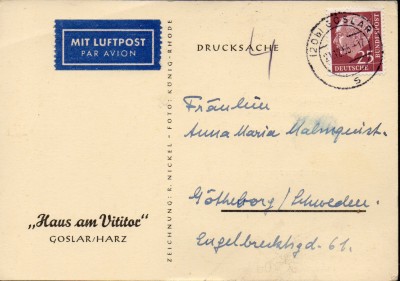 MIT LUFTPOST
PAR AVION
DRUCKSACHE
(20b) GOSLAR
s
25
DEUTSCHE
BUNDESPOST
Fräulein
Anna Maria Malmquist.
Götheborg/Schweden.
Engelbrechtsgd. 61.
ZEICHNUNG: R. NICKEL - FOTO: KÖNIG-RHODE
„Haus am Vititor"
GOSLAR/HARZ